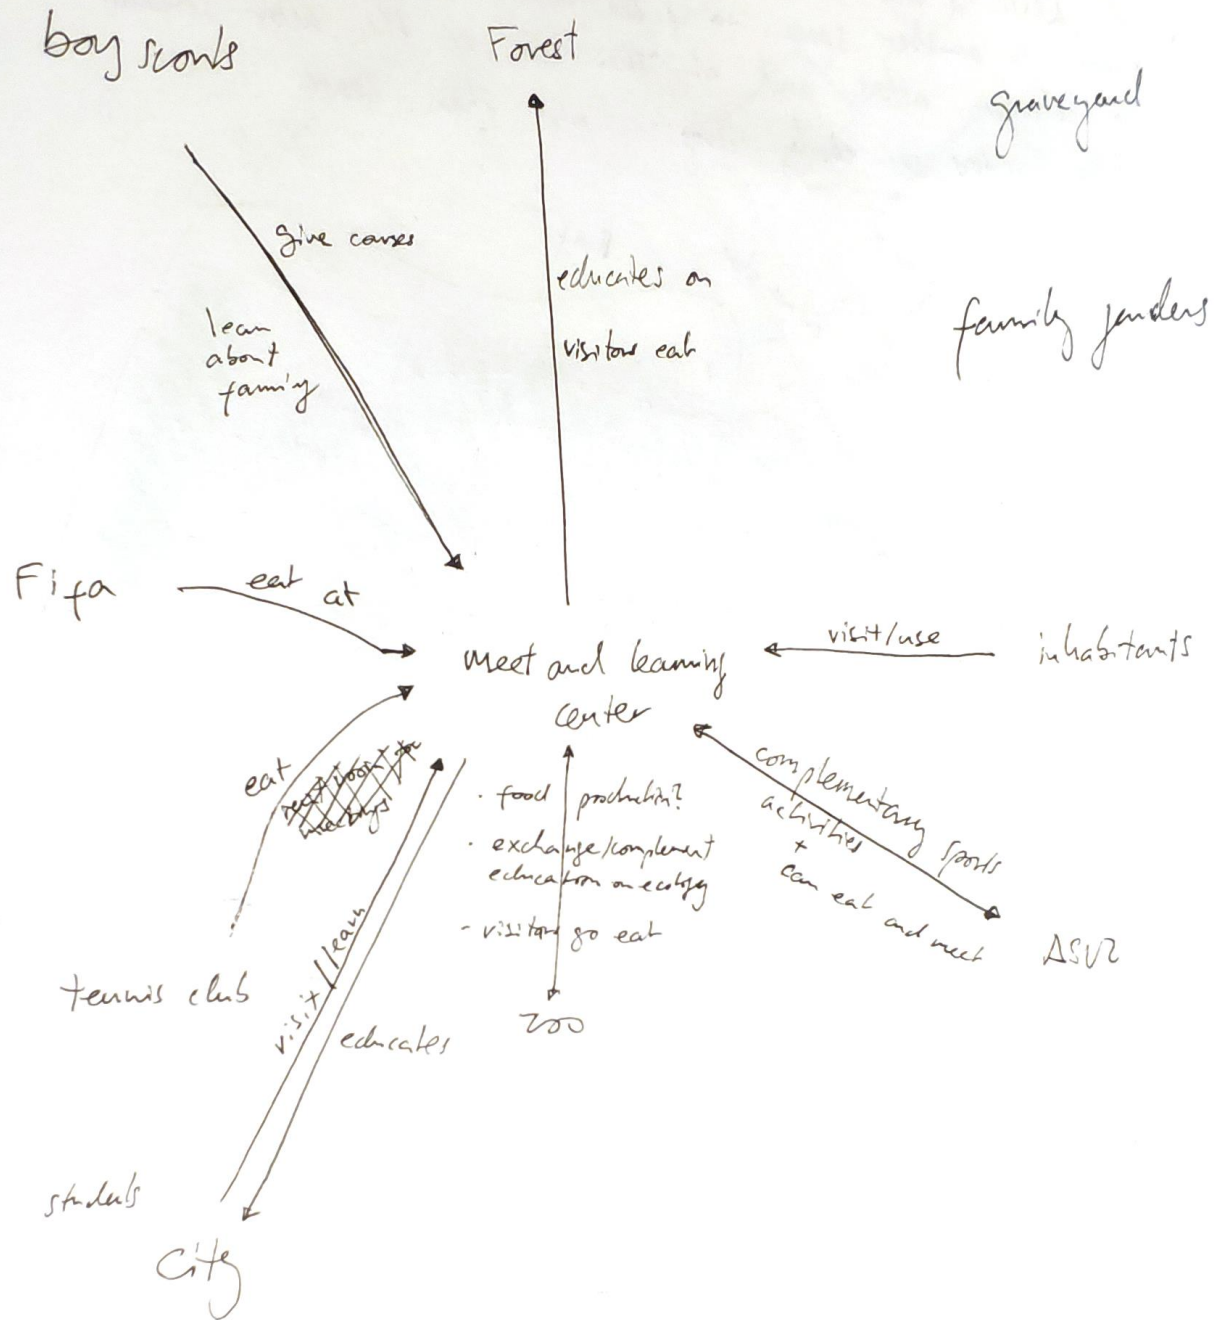 boy scouts
Forest
graveyard
give courses
educates on
visitors eat
learn
about
farming
family gardens
Fifa
eat at
meet and learning
center
visit/use
inhabitants
eat
meetings
· food production?
· exchange/complement
education on ecology
- visitors go eat
complementary sports
activities
+
can eat and meet
ASVZ
tennis club
visit/learn
educates
zoo
students
City